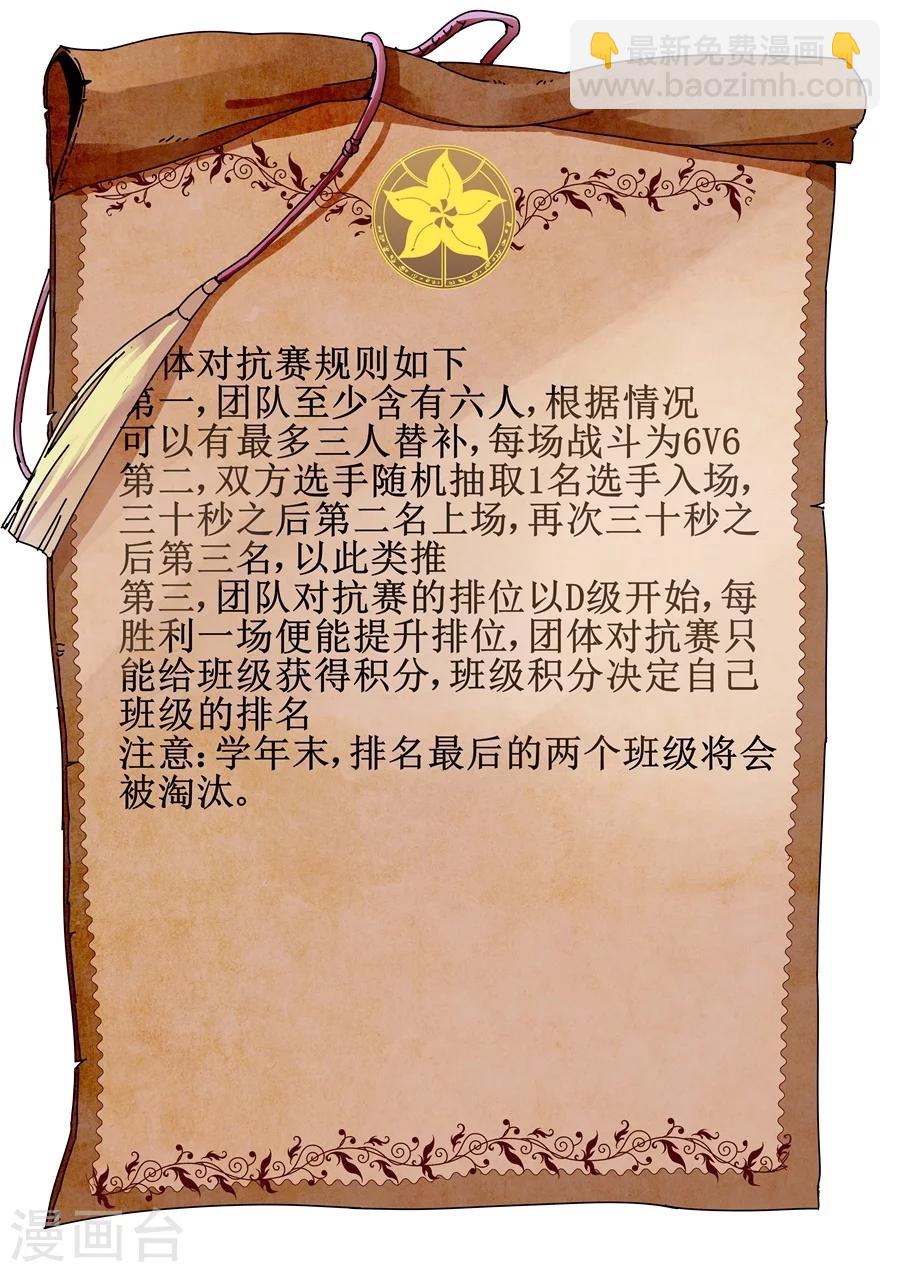 最新免费漫画
www.baozimh.com
体对抗赛规则如下
第一,团队至少含有六人,根据情况
可以有最多三人替补,每场战斗为6V6
第二,双方选手随机抽取1名选手入场,
三十秒之后第二名上场,再次三十秒之
后第三名,以此类推
第三,团队对抗赛的排位以D级开始,每
胜利一场便能提升排位,团体对抗赛只
能给班级获得积分,班级积分决定自己
班级的排名
注意:学年末,排名最后的两个班级将会
被淘汰。
漫画台